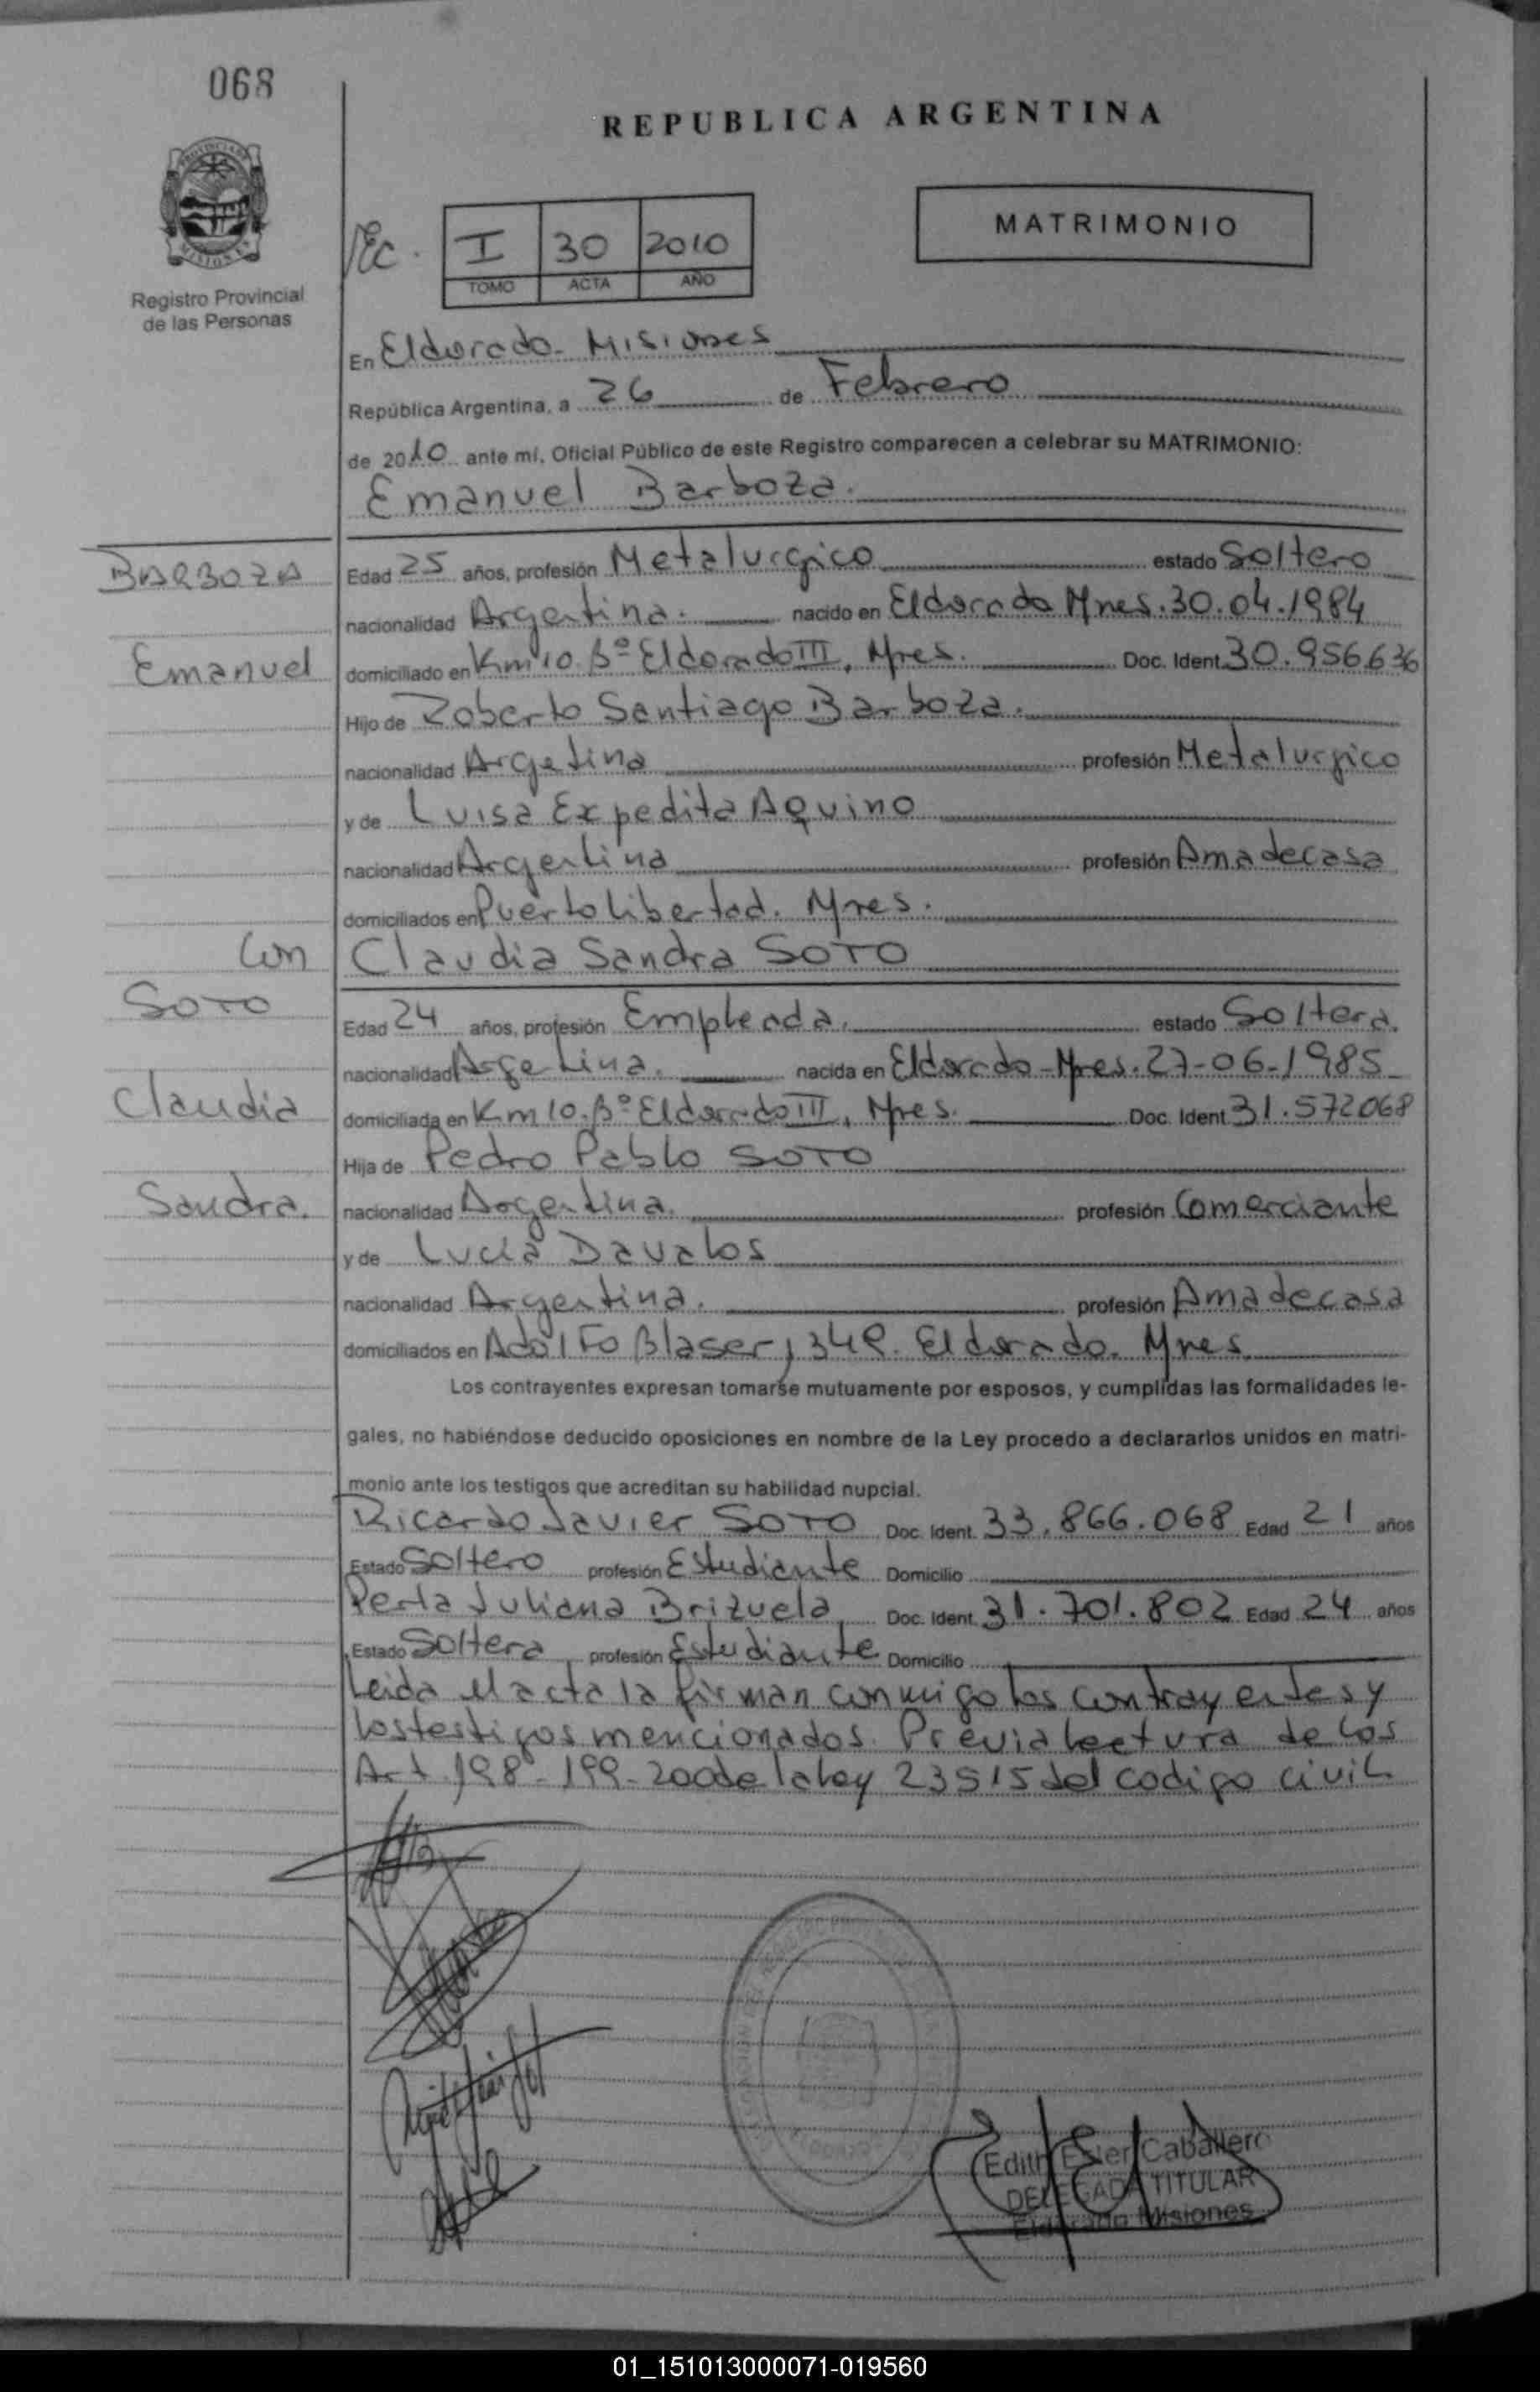 068
REPUBLICA ARGENTINA
PROVINCIA DE
MISIONES
Registro Provincial
de las Personas
I 30 2010
TOMO ACTA AÑO
MATRIMONIO
En Eldorado - Misiones
República Argentina, a 26 de Febrero
de 2010 ante mí, Oficial Público de este Registro comparecen a celebrar su MATRIMONIO:
Emanuel Barboza.
BARBOZA Edad 25 años, profesión Metalurgico estado Soltero
nacionalidad Argentina. nacido en Eldorado Mnes. 30.04.1984
Emanuel domiciliado en Km 10. Bº Eldorado III, Mnes. Doc. Ident. 30.956.636
Hijo de Roberto Santiago Barboza.
nacionalidad Argetina profesión Metalurgico
y de Luisa Expedita Aquino
nacionalidad Argentina profesión Ama de casa
domiciliados en Puerto Libertad. Mnes.
Con Claudia Sandra SOTO
SOTO Edad 24 años, profesión Empleada. estado Soltera.
nacionalidad Argentina. nacida en Eldorado - Mnes. 27-06-1985
Claudia domiciliada en Km 10. Bº Eldorado III, Mnes. Doc. Ident. 31.572068
Hija de Pedro Pablo SOTO
Sandra. nacionalidad Argentina. profesión Comerciante
y de Lucia Davalos
nacionalidad Argentina. profesión Ama de casa
domiciliados en Adolfo Blaser, 349. Eldorado. Mnes.
Los contrayentes expresan tomarse mutuamente por esposos, y cumplidas las formalidades le-
gales, no habiéndose deducido oposiciones en nombre de la Ley procedo a declararlos unidos en matri-
monio ante los testigos que acreditan su habilidad nupcial.
Ricardo Javier SOTO Doc. Ident. 33.866.068 Edad 21 años
Estado Soltero profesión Estudiante Domicilio
Perla Juliana Brizuela Doc. Ident. 31.701.802 Edad 24 años
Estado Soltera profesión Estudiante Domicilio
Leida el acta la firman conmigo los contrayentes y
los testigos mencionados. Previa lectura de los
Art 198-199-200 de la ley 23515 del codigo civil
Edith Ester Caballero
DELEGADA TITULAR
Eldorado Misiones
01_151013000071-019560